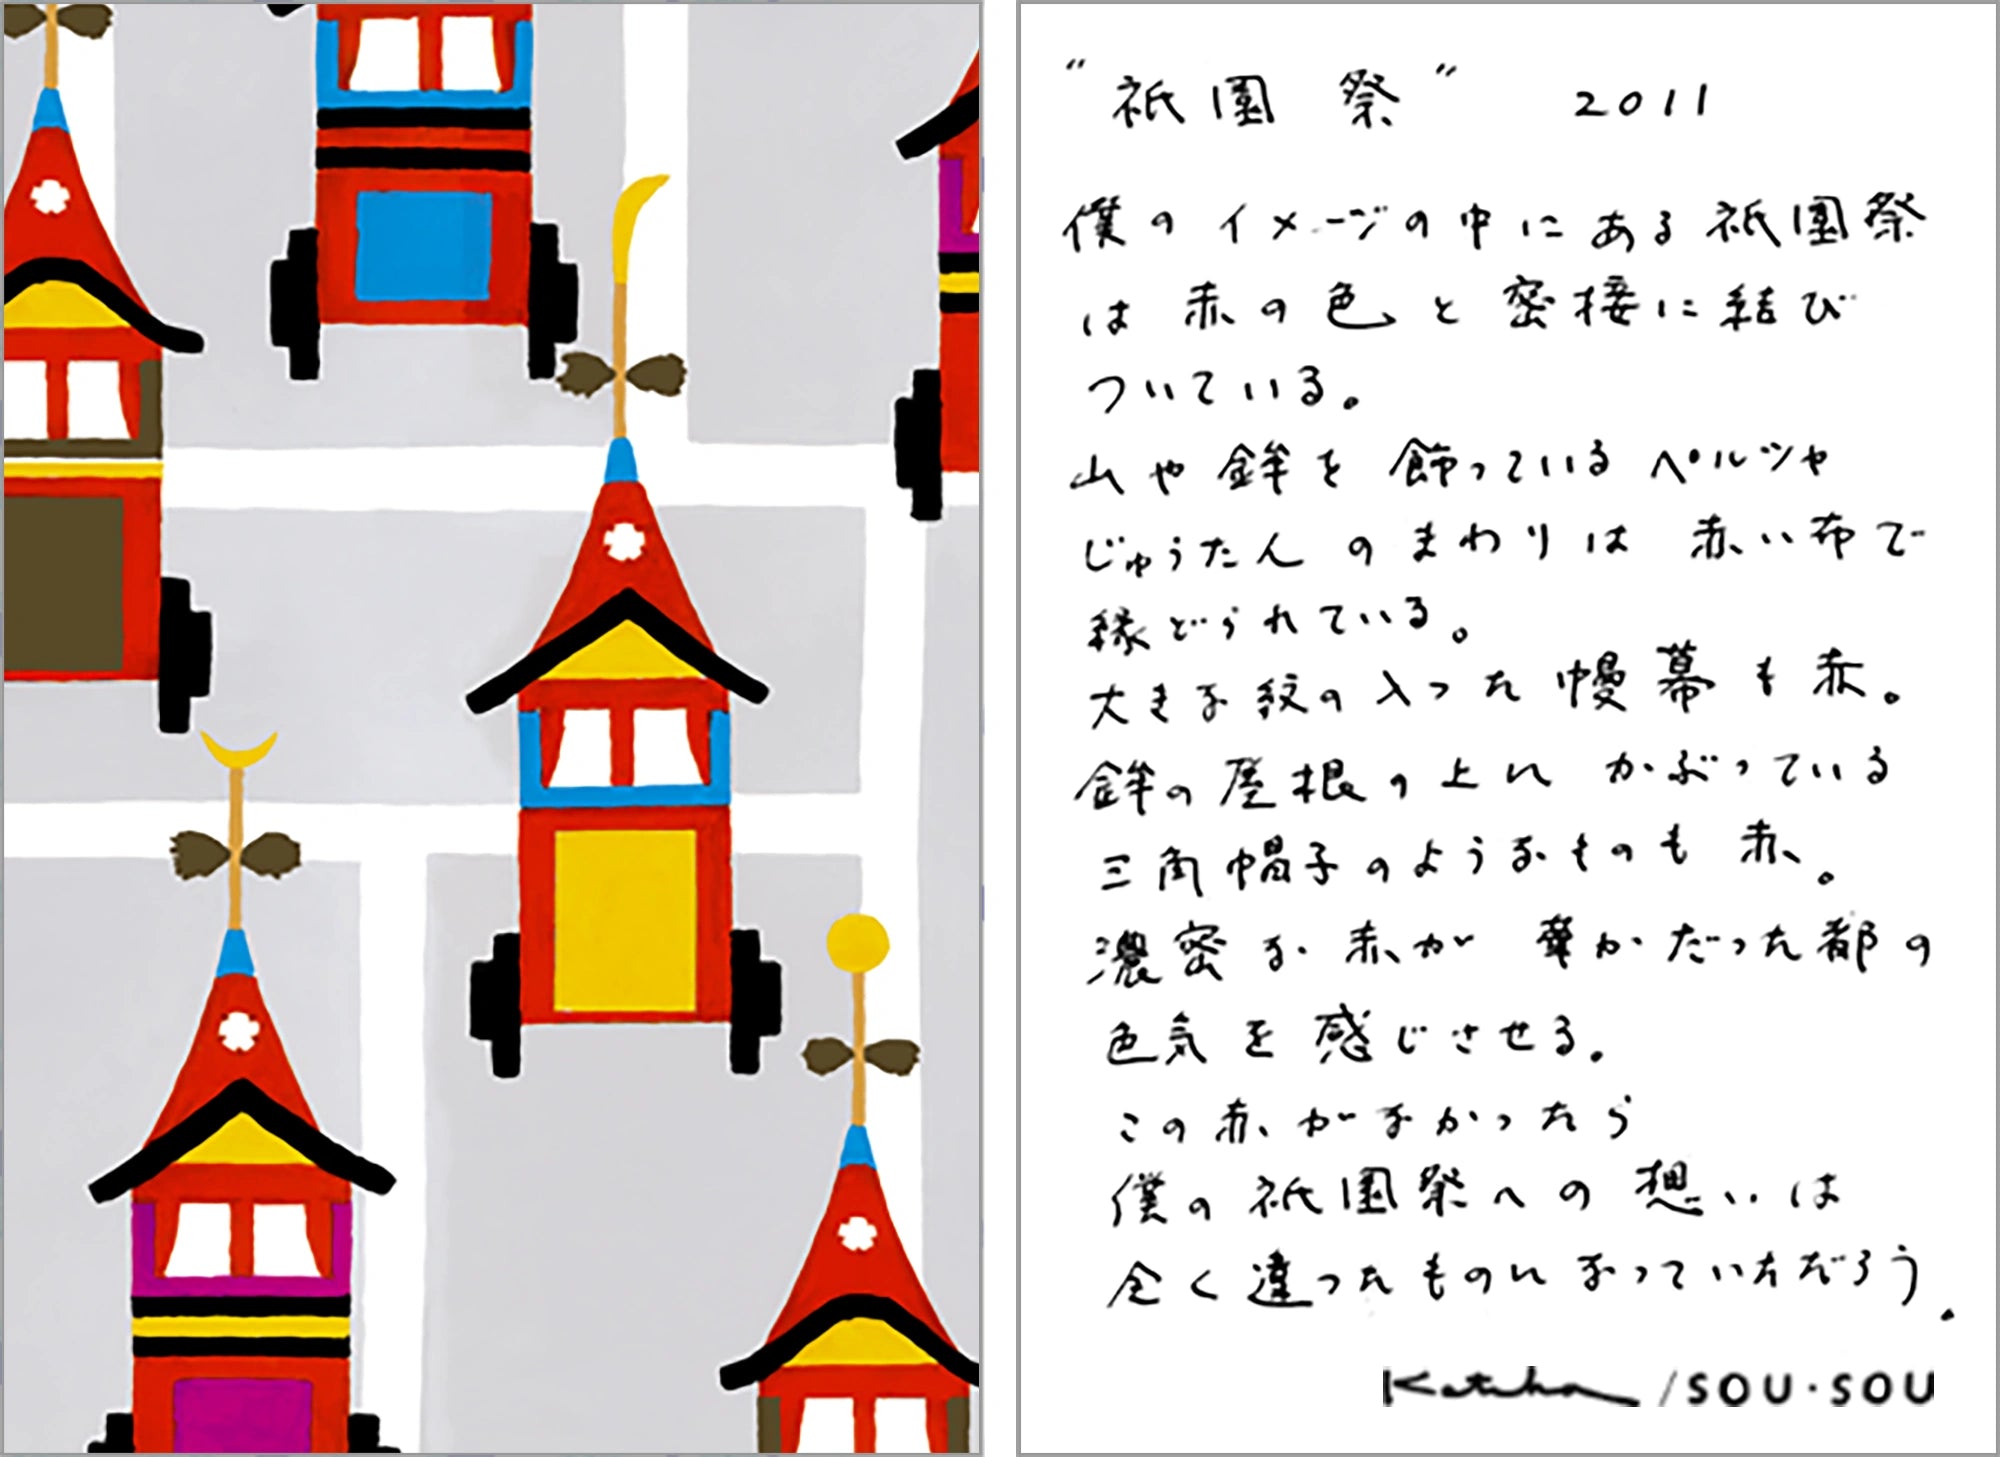 "祇園 祭" 2011
僕の イメージの中に ある 祇園祭
は 赤の色と 密接に結び
ついている。
山や鉾を 飾っている ペルシャ
じゅうたん のまわりは 赤い布で
縁どられている。
大きな紋の入った 幔幕も赤。
鉾の屋根の上に かぶっている
三角帽子のようなものも 赤。
濃密な赤が 華かだった都の
色気を感じさせる。
この赤がなかったら
僕の祇園祭への想いは
全く違ったものになっていただろう。
Katsuha / SOU・SOU